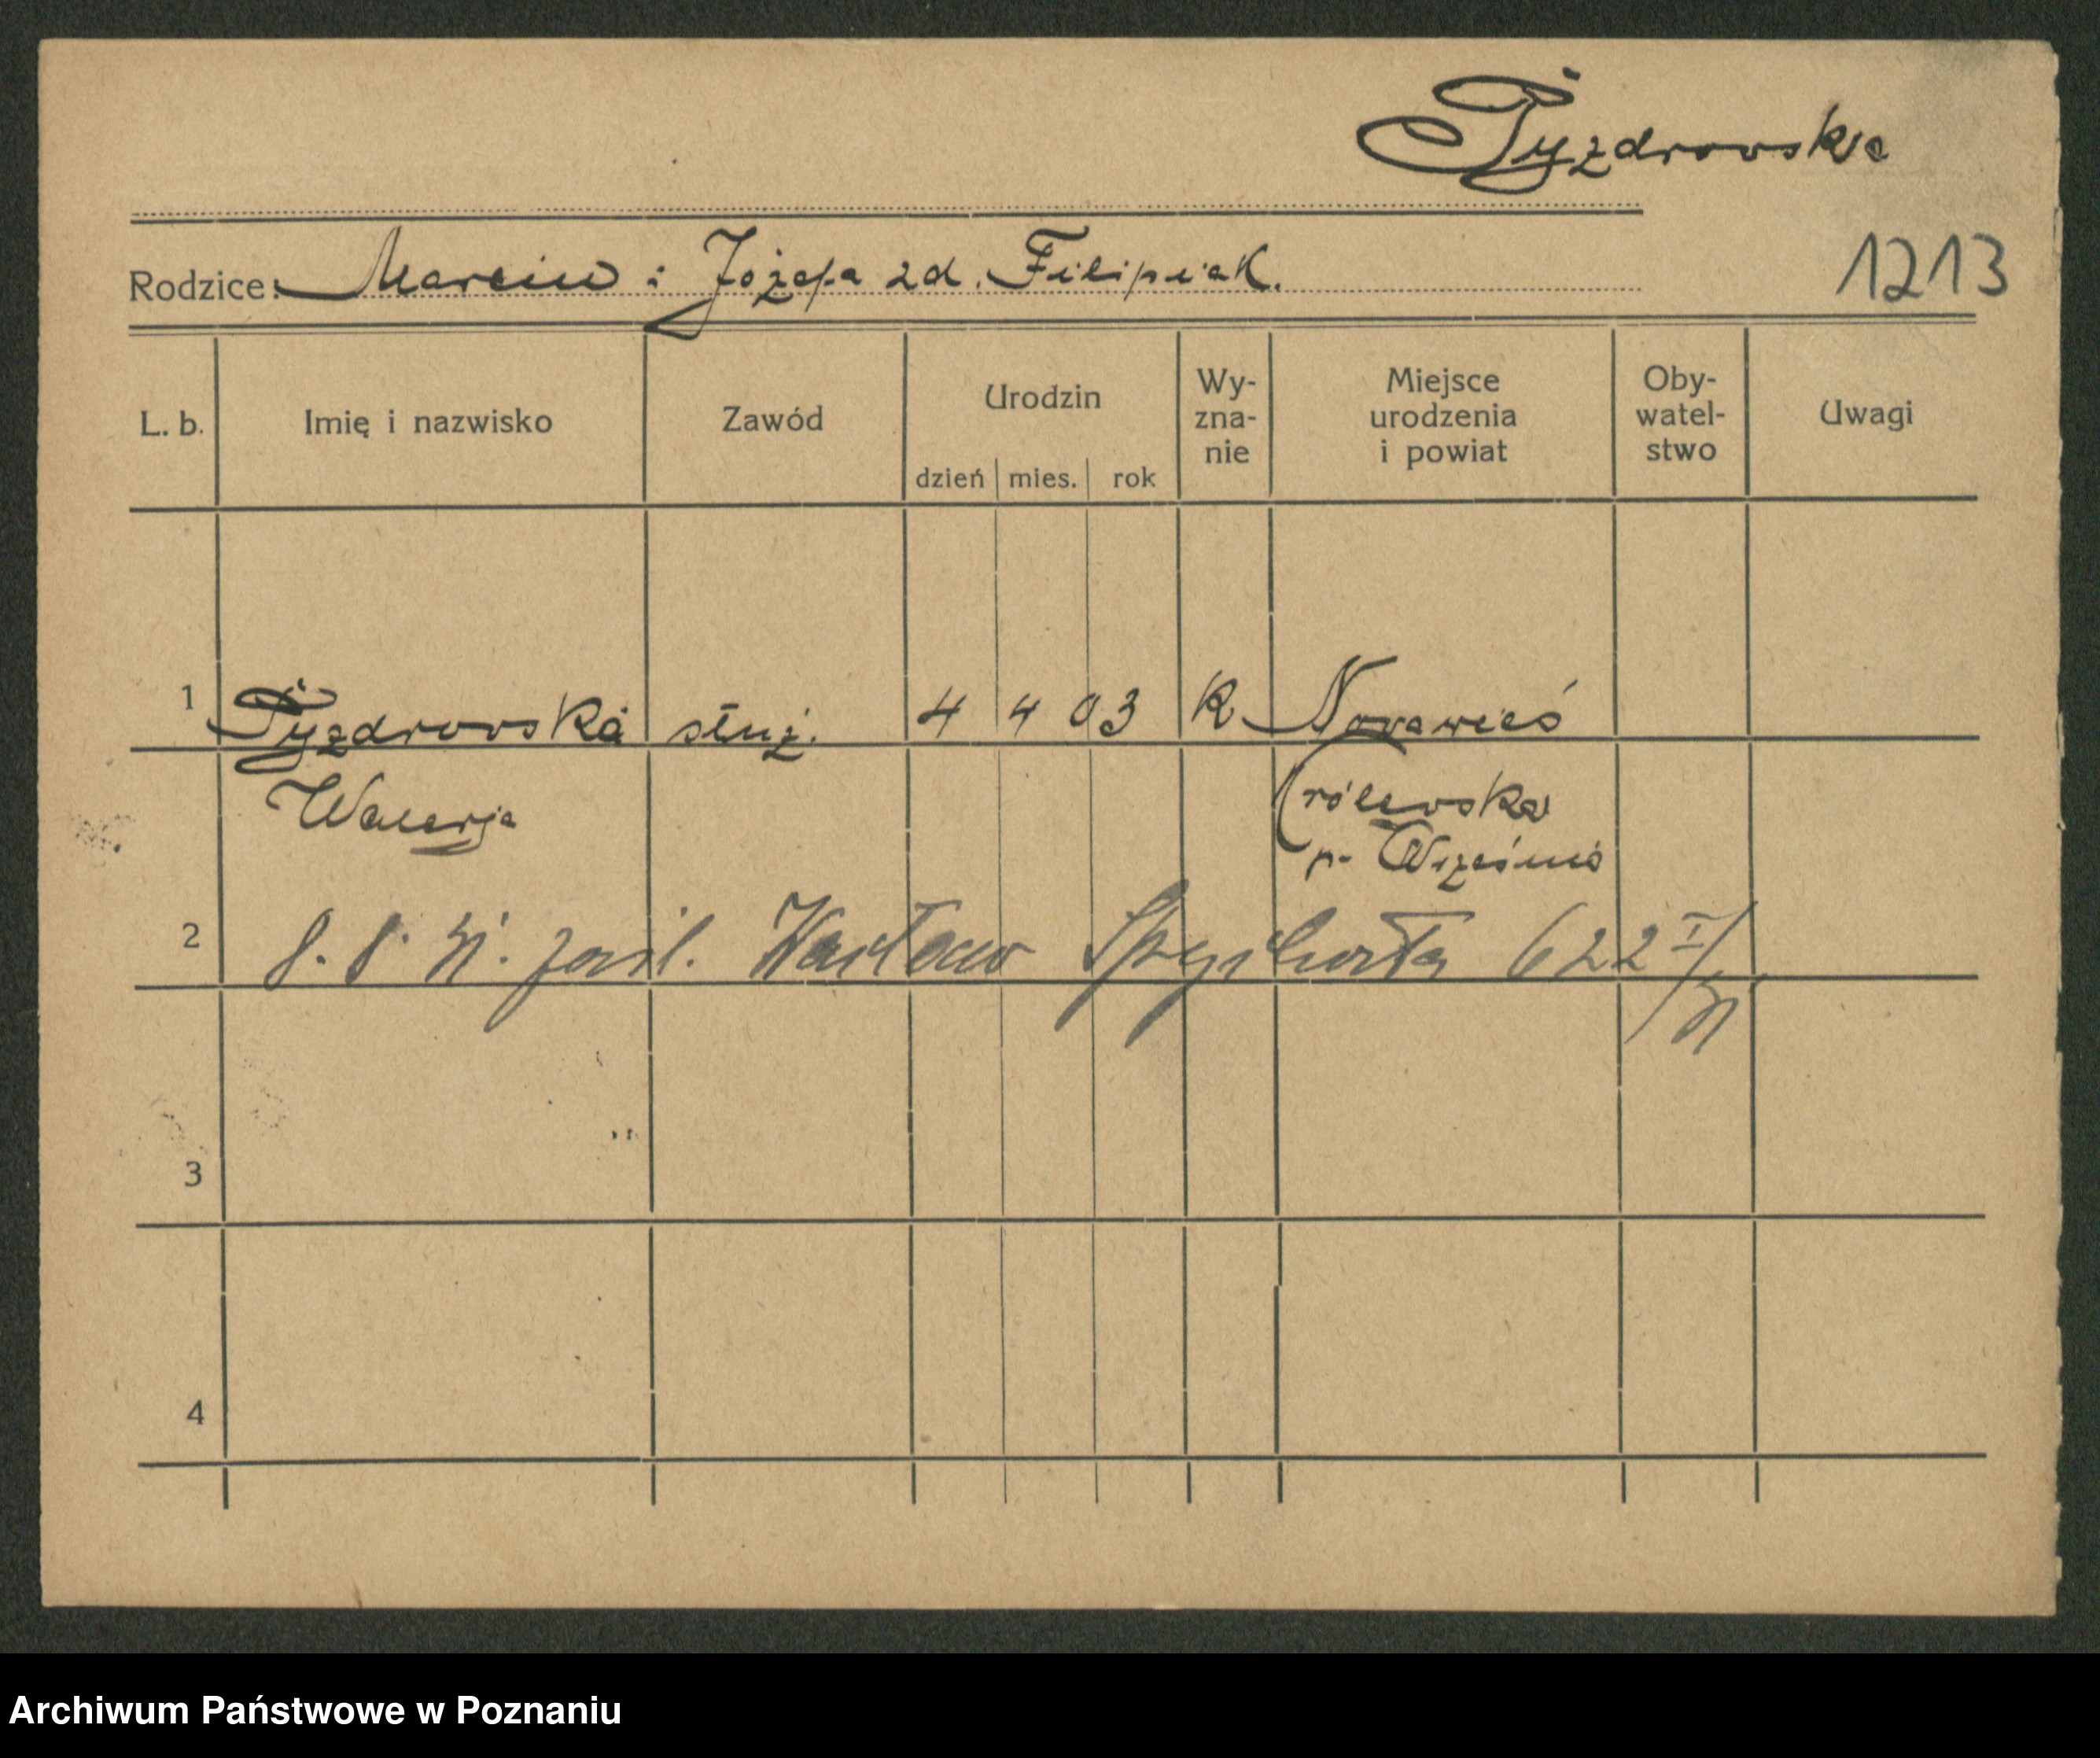 Pyzdrowska
Rodzice: Marcin i Józefa zd. Filipiak.
1213
L. b.
Imię i nazwisko
Zawód
Urodzin
dzień mies. rok
Wy-
zna-
nie
Miejsce
urodzenia
i powiat
Oby-
watel-
stwo
Uwagi
1 Pyzdrowska służ. 4 4 03 K Nowawieś
Walerja
Królewska
p. Września
2 8. 8. 31. zaśl. Wacław Spychała 622 I/31
3
4
Archiwum Państwowe w Poznaniu